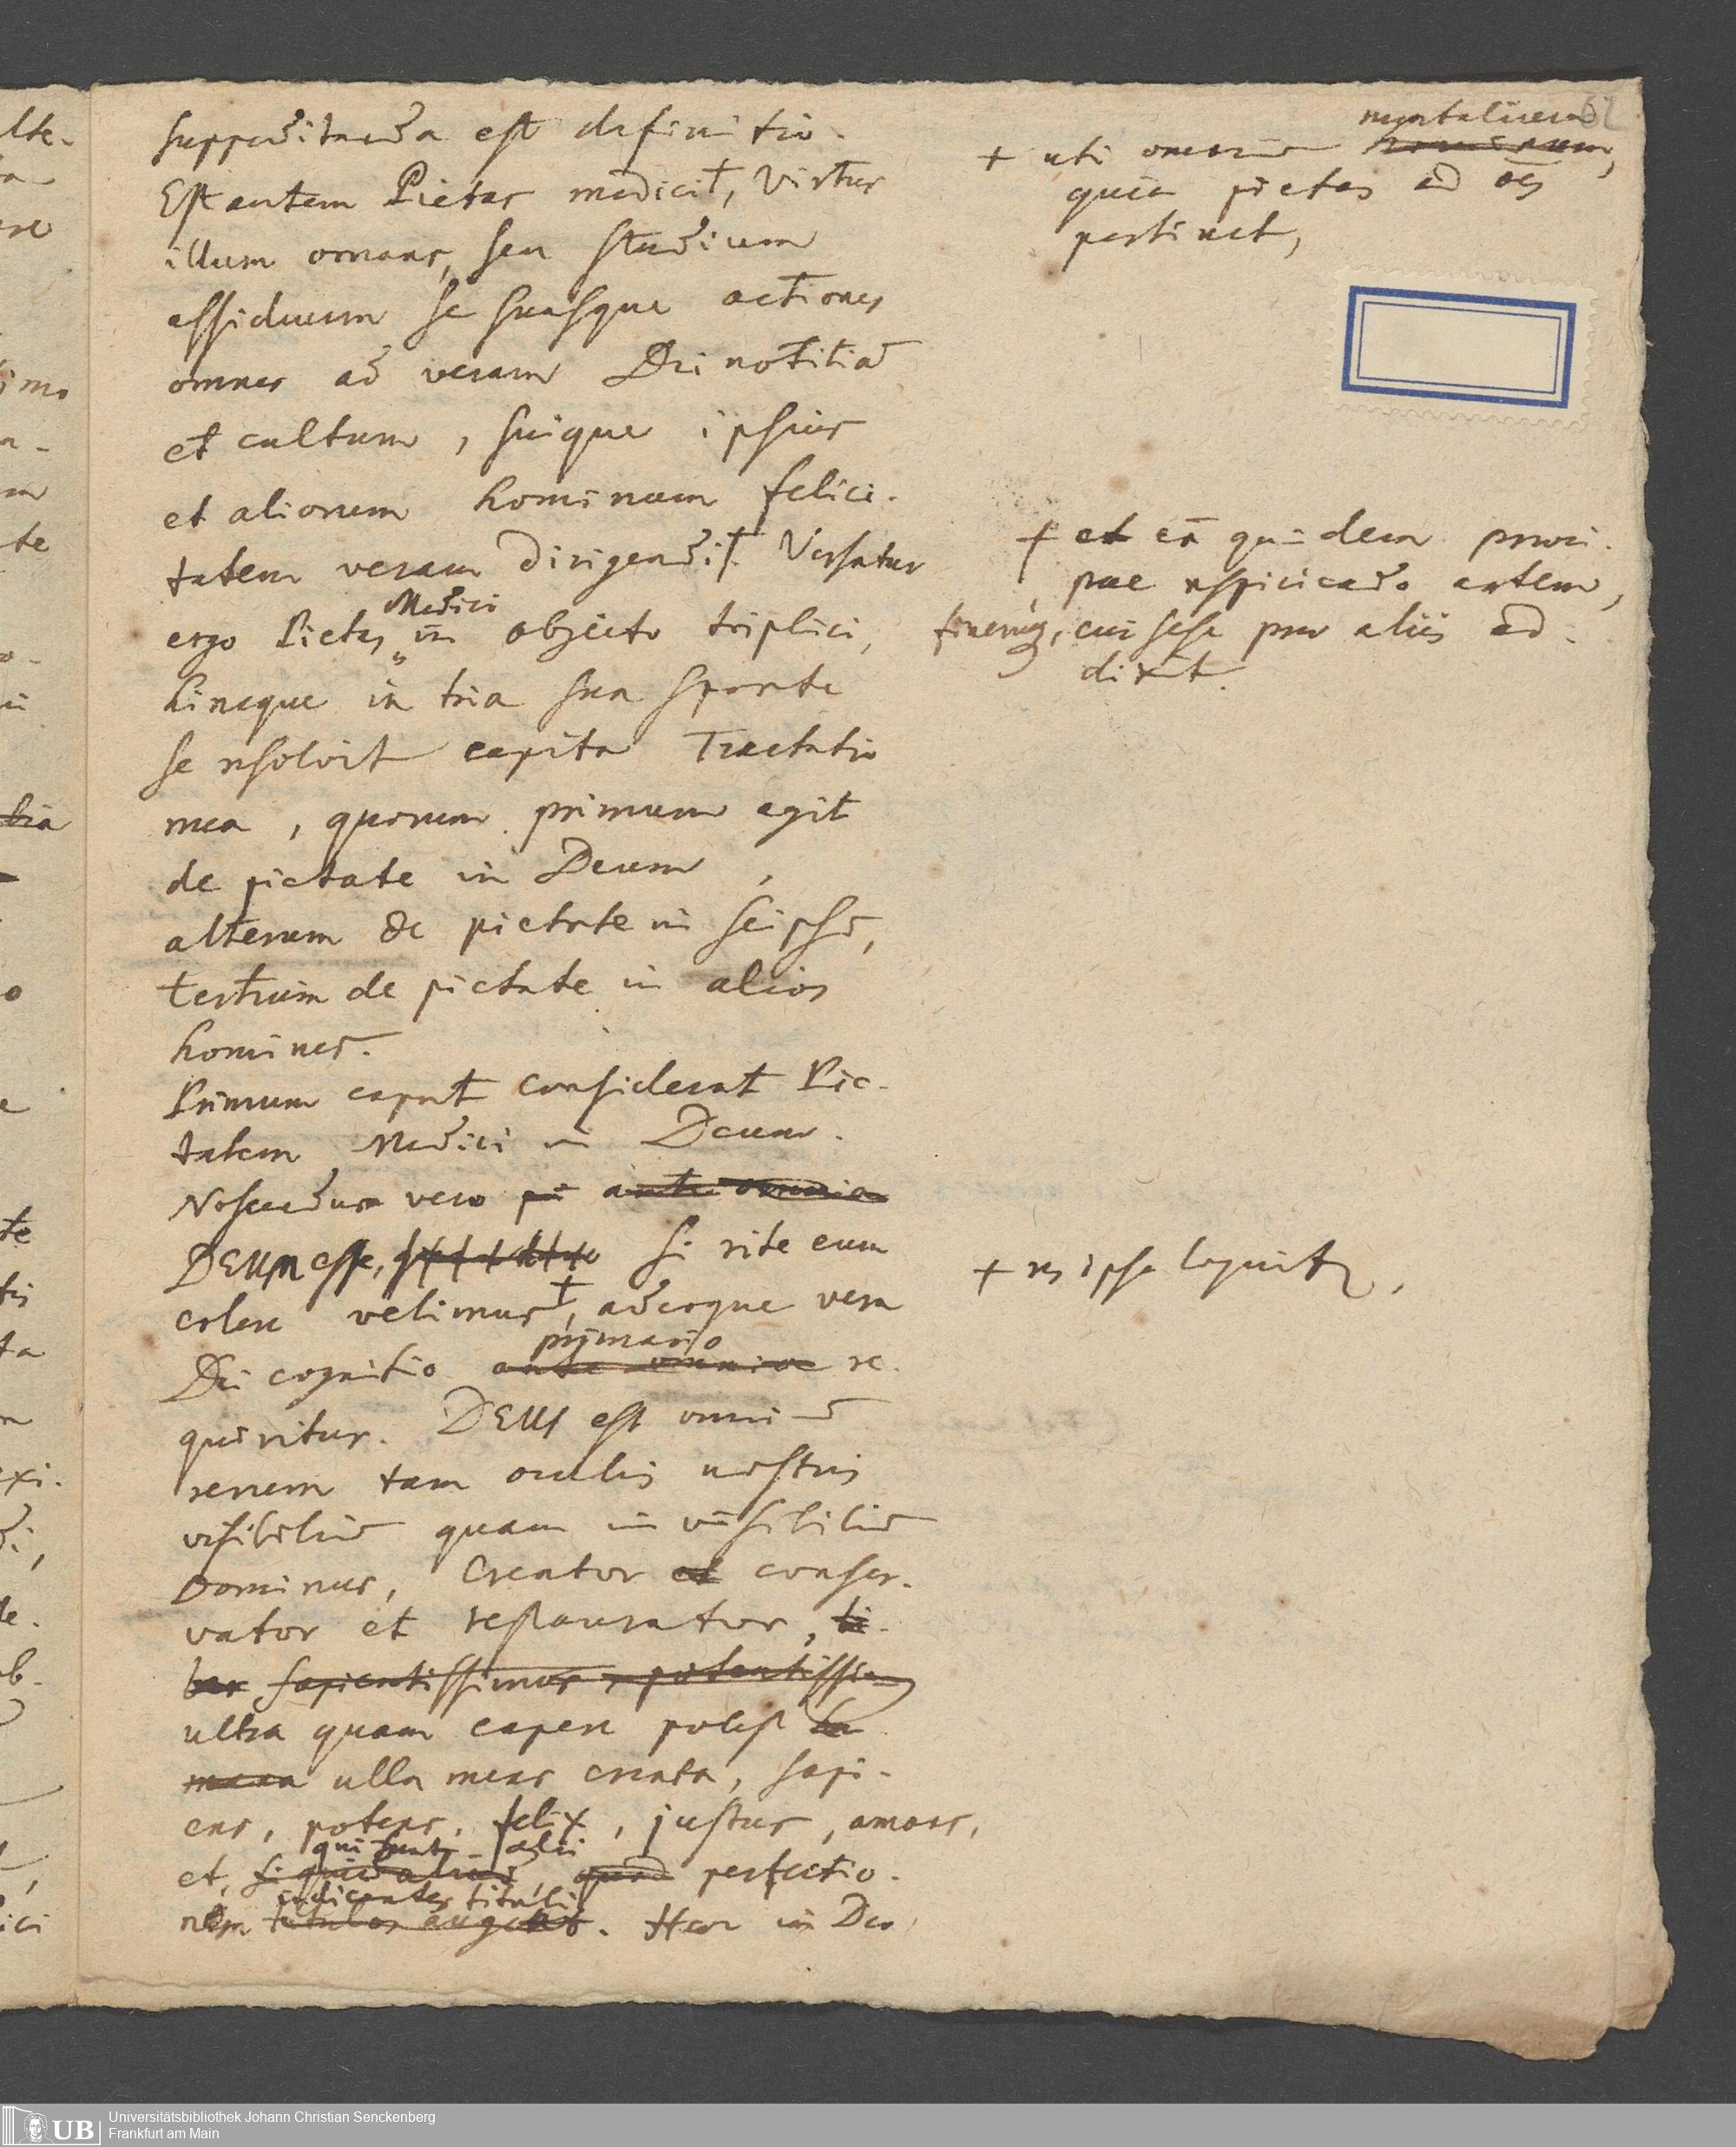 suppeditanda est definitio.
Est autem Pietas medici +, Virtus
illum ornans, seu studium
assiduum se suasque actiones
omnes ad veram Dei notitiam
et cultum, suique ipsius
et aliorum hominum felici-
tatem veram dirigendi +. Versatur
ergo Pietas Medici in objecto triplici,
hincque in tria sua sponte
se resolvit capita Tractatio
mea, quorum primum agit
de pietate in Deum,
alterum de pietate in seipsum,
tertium de pietate in alios
homines.
Primum caput considerat Pie-
tatem Medici in Deum.
Noscendum vero ante omnia
DEUM esse, si rite eum
colere velimus +, adeoque vera
Dei cognitio primario
ante omnia re-
quiritur. DEUS est omnium
rerum tam oculis nostris
visibilium quam invisibilium
Dominus, Creator et conser-
vator et restaurator, li-
ber sapientissimus, potentissimus
ultra quam capere potest hu
mana ulla mens creata, sapi-
ens, potens, felix, justus, amans,
qui sunt alii
et, si quid aliud, quod perfectio-
indicantes tituli
nem titulos auget. Haec in Deo
mortalium
+ uti omnium hominum,
quia pietas ad oēs
pertinet,
+ et eā quidem praeci-
pue respiciendo artem,
cui sese prae aliis ad-
dixit.
+ res ipsa loquitur,
62
lte-
imo
te
tia
te
exi-
ici
UB
Universitätsbibliothek Johann Christian Senckenberg
Frankfurt am Main